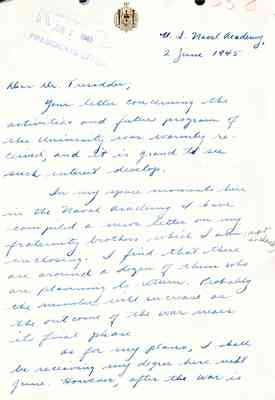 JUN 2 1945
PRESIDENT'S OFFICE
U. S. Naval Academy,
2 June 1945
Dear Dr. Tresidder,
Your letter concerning the
activities and future program of
the University was warmly re-
ceived, and it is grand to see
such interest develop.
In my spare moments here
in the Naval Academy I have
compiled a news letter on my
fraternity brothers which I am not
enclosing. I find that there
are around a dozen of them who
are planning to return. Probably
the number will increase as
the outcome of the war nears
its final phase.
As for my plans, I shall
be receiving my degree here next
June. However, after the war is